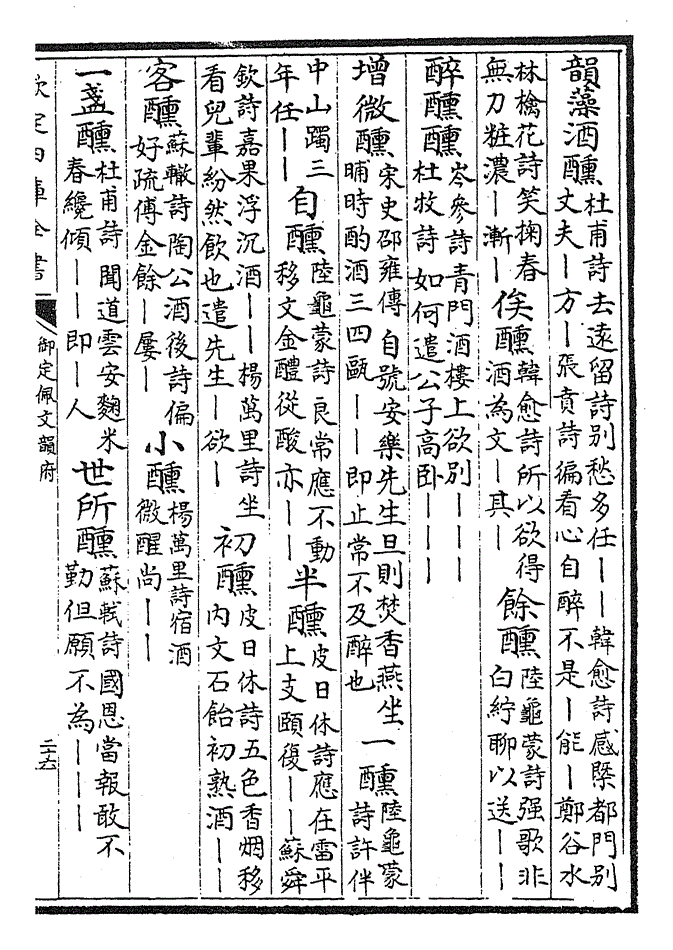 韻藻酒醺杜甫詩去遠留詩别愁多任丨丨韓愈詩感槩都門别丈夫丨方丨張賁詩徧看心自醉不是丨能丨鄭谷水
林檎花詩笑掬春無力粧濃丨漸丨俟醺韓愈詩所以欲得酒為文丨其丨餘醺陸龜蒙詩强歌非白紵聊以送丨丨
醉醺醺岑參詩青門酒樓上欲别丨丨丨杜牧詩如何遣公子高卧丨丨丨
增微醺宋史邵雍傳自號安樂先生旦則焚香燕坐晡時酌酒三四甌丨丨即止常不及醉也一醺陸龜蒙詩許伴
中山躅三年任丨丨自醺陸龜蒙詩良常應不動移文金醴從酸亦丨丨半醺皮日休詩應在雷平上支頤復丨丨蘇舜
欽詩嘉果浮沉酒丨丨楊萬里詩坐看兒輩紛然飲也遣先生丨欲丨初醺皮日休詩五色香烟移内文石飴初熟酒丨丨
客醺蘇轍詩陶公酒後詩偏好疏傅金餘丨屢丨小醺楊萬里詩宿酒微醒尚丨丨
一盞醺杜甫詩聞道雲安麴米春纔傾丨丨即丨人世所醺蘇軾詩國恩當報敢不勤但願不為丨丨丨
欽定四庫全書
御定佩文韻府
二十六